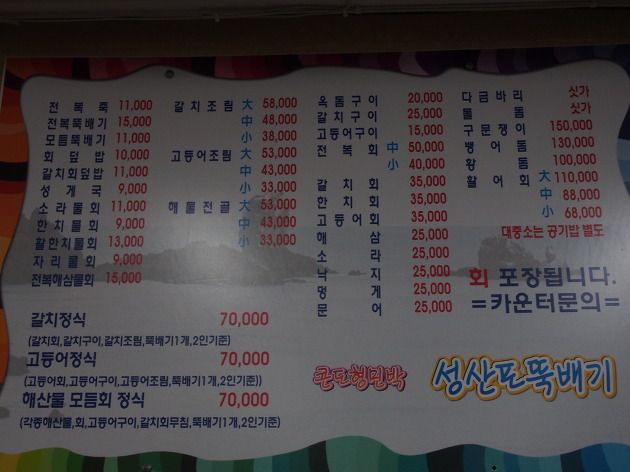 전복죽 11,000
전복뚝배기 15,000
모듬뚝배기 11,000
회덮밥 10,000
갈치회덮밥 11,000
성게국 9,000
소라물회 11,000
한치물회 9,000
활한치물회 13,000
자리물회 9,000
전복해삼물회 15,000
갈치조림 大 58,000
中 48,000
小 38,000
고등어조림 大 53,000
中 43,000
小 33,000
해물전골 大 53,000
中 43,000
小 33,000
옥돔구이 20,000
갈치구이 25,000
고등어구이 15,000
전복회 中 50,000
小 40,000
갈치회 35,000
한치회 35,000
고등어회 35,000
해삼 25,000
소라 25,000
낙지 25,000
멍게 25,000
문어 25,000
다금바리 싯가
돌돔 싯가
구문쟁이 150,000
뱅어돔 130,000
황돔 100,000
활어회 大 110,000
中 88,000
小 68,000
대중소는 공기밥 별도
회 포장됩니다.
=카운터문의=
갈치정식 70,000
(갈치회,갈치구이,갈치조림,뚝배기1개,2인기준)
고등어정식 70,000
(고등어회,고등어구이,고등어조림,뚝배기1개,2인기준))
해산물 모듬회 정식 70,000
(각종해산물,회,고등어구이,갈치회무침,뚝배기1개,2인기준)
콘도형민박
성산포뚝배기